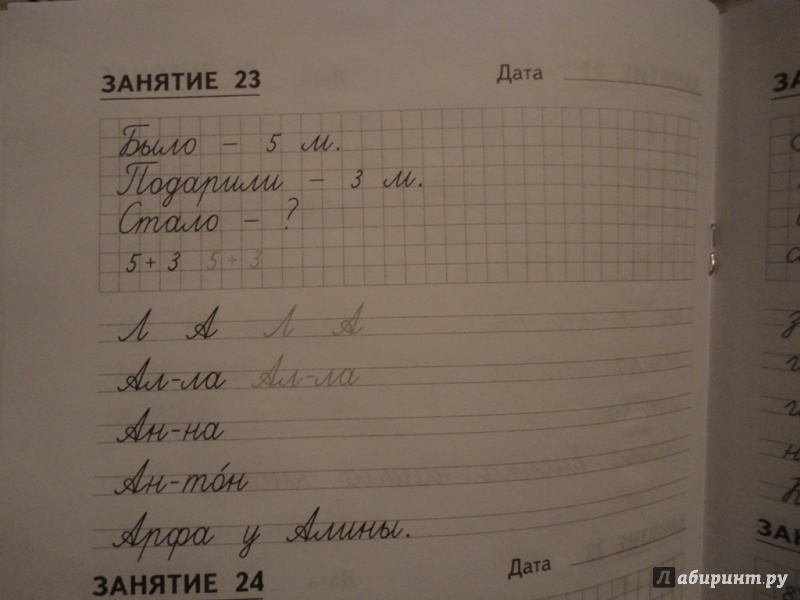 ЗАНЯТИЕ 23 Дата
Было – 5 м.
Подарили – 3 м.
Стало – ?
5 + 3 5 + 3
Л А Л А
Ал-ла Ал-ла
Ан-на
Ан-то́н
Арфа у Алины.
ЗАНЯТИЕ 24 Дата
Лабиринт.ру